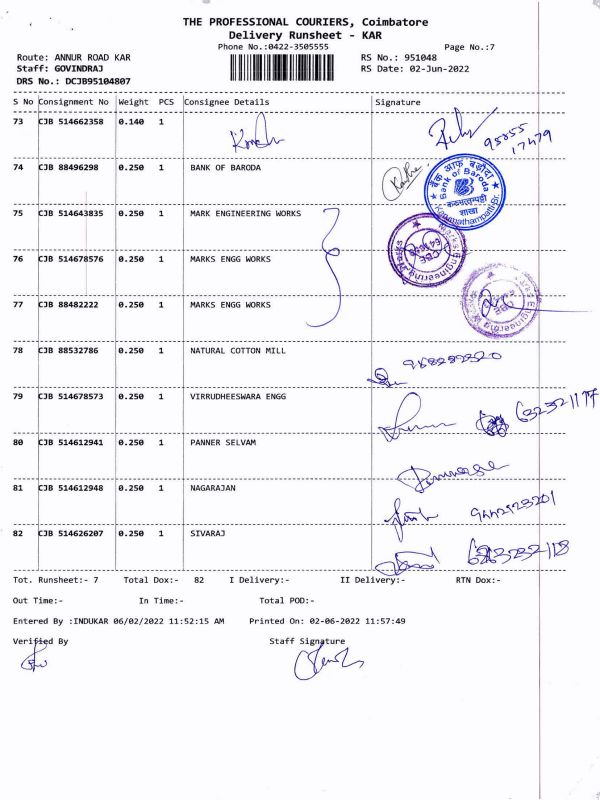 THE PROFESSIONAL COURIERS, Coimbatore
Delivery Runsheet - KAR
Phone No.:0422-3505555
Page No.:7
Route: ANNUR ROAD KAR
RS No.: 951048
Staff: GOVINDRAJ
RS Date: 02-Jun-2022
DRS No.: DCJB95104807
S No Consignment No Weight PCS Consignee Details Signature
73 CJB 514662358 0.140 1
74 CJB 88496298 0.250 1 BANK OF BARODA
बैंक ऑफ़ बड़ौदा
Bank of Baroda
शाखा
75 CJB 514643835 0.250 1 MARK ENGINEERING WORKS
76 CJB 514678576 0.250 1 MARKS ENGG WORKS
Marks Engineering Works
CBE
77 CJB 88482222 0.250 1 MARKS ENGG WORKS
Marks Engineering Works
CBE
78 CJB 88532786 0.250 1 NATURAL COTTON MILL
79 CJB 514678573 0.250 1 VIRRUDHEESWARA ENGG
80 CJB 514612941 0.250 1 PANNER SELVAM
81 CJB 514612948 0.250 1 NAGARAJAN
82 CJB 514626207 0.250 1 SIVARAJ
Tot. Runsheet:- 7 Total Dox:- 82 I Delivery:- II Delivery:- RTN Dox:-
Out Time:- In Time:- Total POD:-
Entered By :INDUKAR 06/02/2022 11:52:15 AM Printed On: 02-06-2022 11:57:49
Verified By Staff Signature